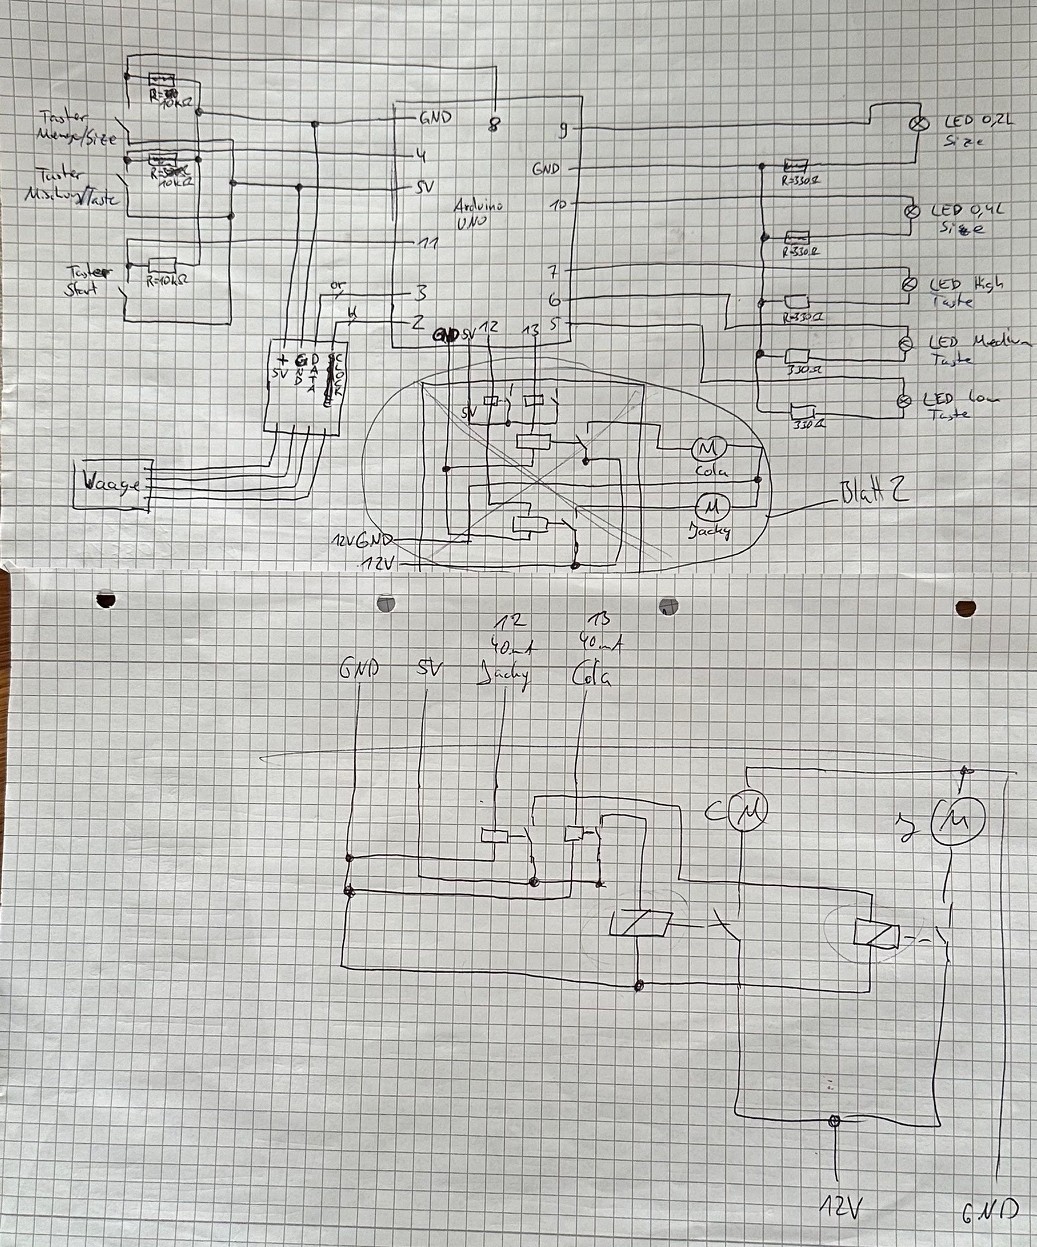 R=
10kΩ
Taster
Menge/Size
R=
10kΩ
Taster
Mischung/Taste
Taster
Start
R=10kΩ
GND
4
5V
11
3
2
8
Arduino
UNO
9
GND
10
7
6
5
GND 5V 12 13
LED 0,2L
Size
R=330Ω
LED 0,4L
Size
R=330Ω
LED High
Taste
R=330Ω
LED Medium
Taste
330Ω
LED Low
Taste
330Ω
or
+
5V
GND
DATA
CLOCK
Waage
5V
M
Cola
M
Jacky
Blatt 2
12V GND
12V
12
40mA
Jacky
13
40mA
Cola
GND
5V
C
M
J
M
12V
GND